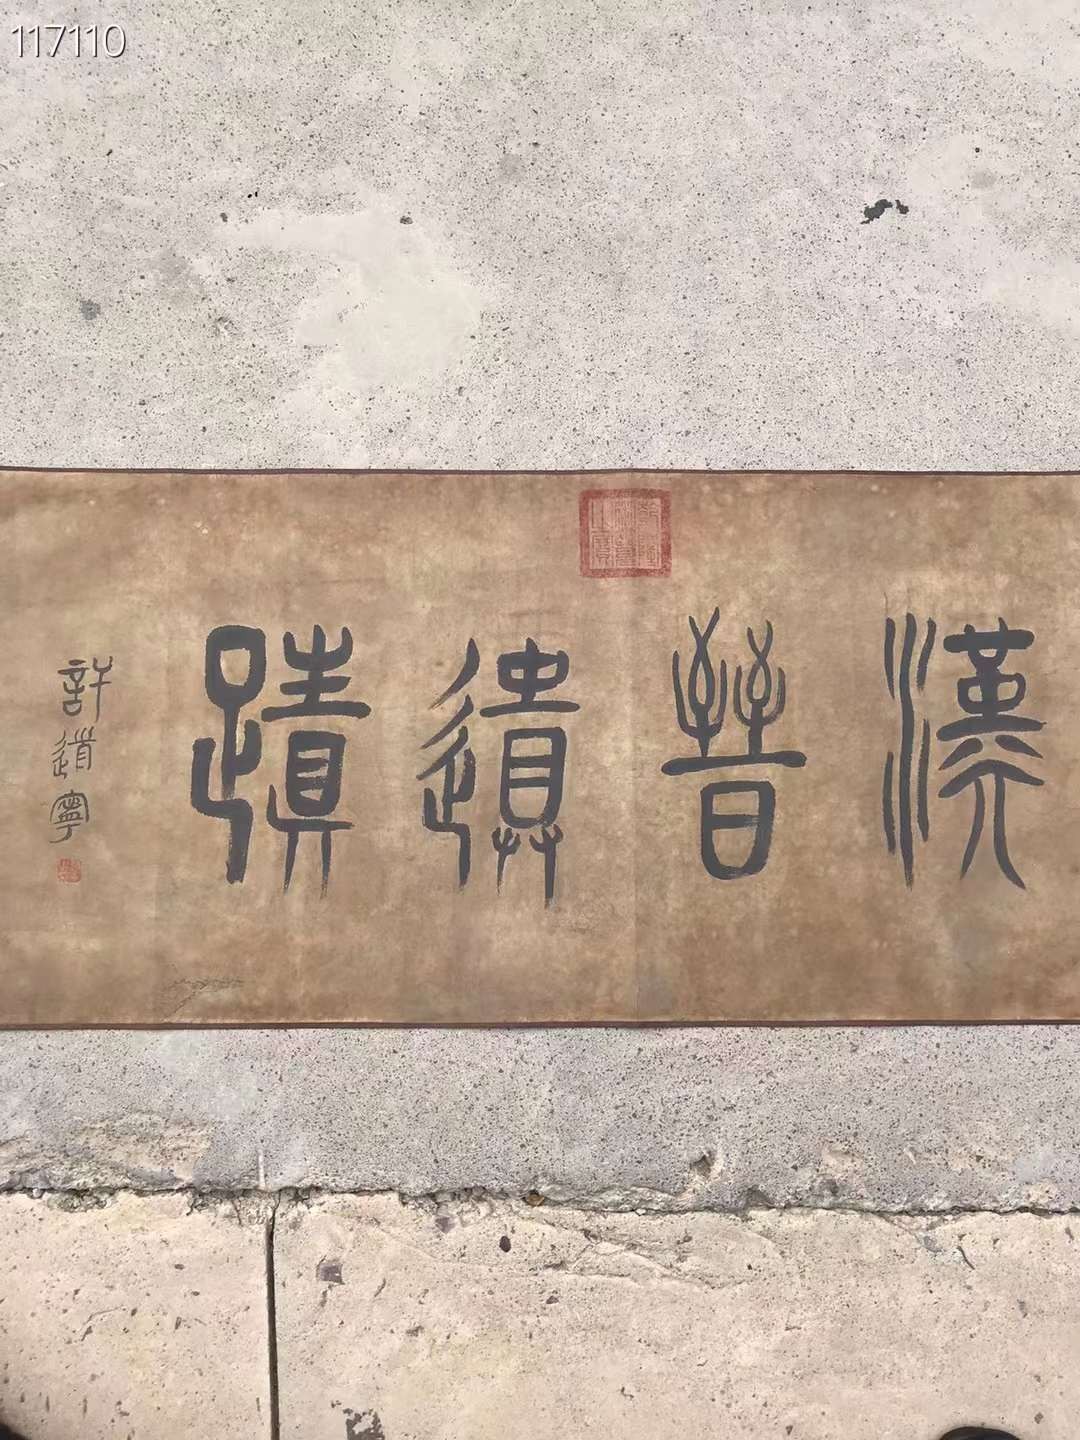 117110
漢晉遺蹟
許道寧